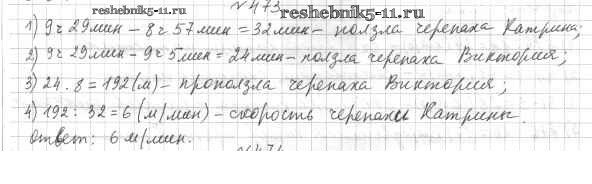 №473
reshebnik5-11.ru
reshebnik5-11.ru
1) 9ч 29мин – 8ч 57мин = 32мин – ползла черепаха Катрина;
2) 9ч 29мин – 9ч 5мин = 24мин – ползла черепаха Виктория;
3) 24 · 8 = 192 (м) – проползла черепаха Виктория;
4) 192 : 32 = 6 (м/мин) – скорость черепахи Катрины.
Ответ: 6 м/мин.